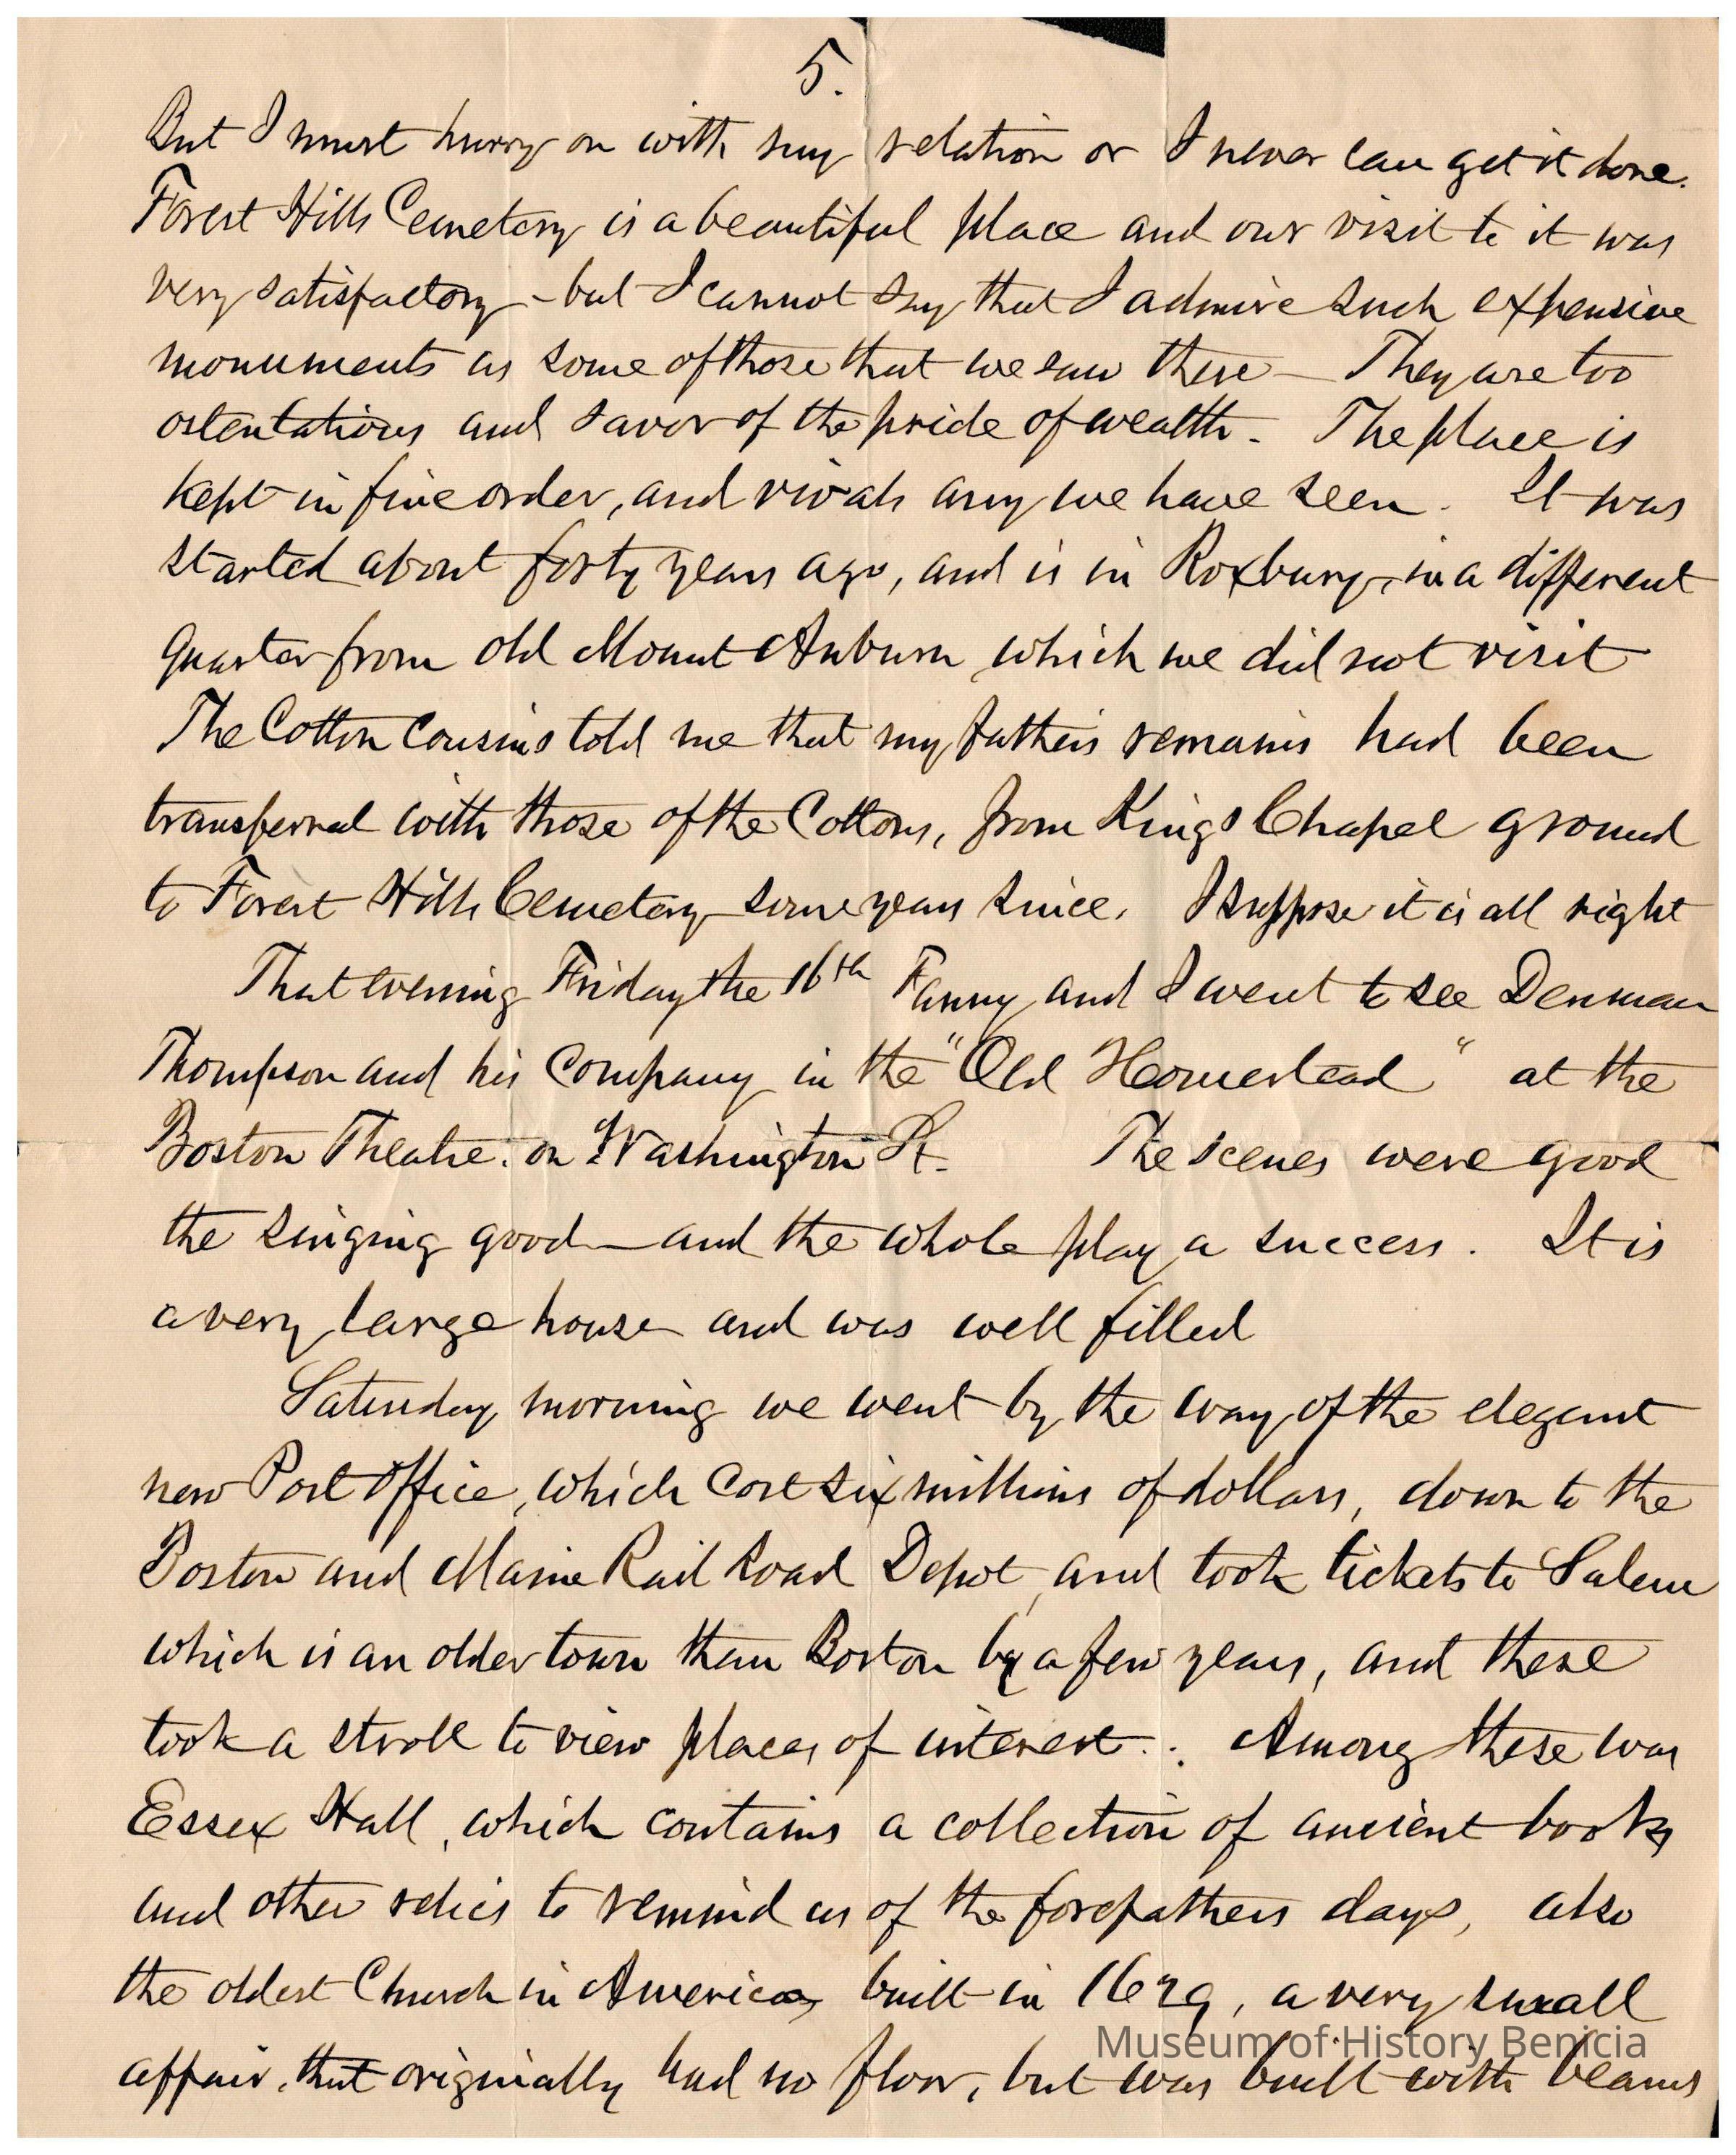 5.
But I must hurry on with my relation or I never can get it done.
Forest Hills Cemetery is a beautiful place and our visit to it was
very satisfactory - but I cannot say that I admire such expensive
monuments as some of those that we saw there — They are too
ostentatious and savor of the pride of wealth. The place is
kept in fine order, and rivals any we have seen. It was
started about forty years ago, and is in Roxbury, in a different
quarter from old Mount Auburn, which we did not visit
The Cotton Cousins told me that my fathers remains had been
transferred with those of the Cottons, from Kings Chapel ground
to Forest Hills Cemetery some years since. I suppose it is all right
That evening Friday the 16th Fanny and I went to see Denman
Thompson and his Company in the "Old Homestead" at the
Boston Theatre. on Washington St. The scenes were good
the singing good — and the whole play a success. It is
a very large house and was well filled
Saturday morning we went by the way of the elegant
new Post Office, which cost six millions of dollars, down to the
Boston and Maine Rail Road Depot, and took tickets to Salem
which is an older town than Boston by a few years, and these
took a stroll to view places of interest. Among these was
Essex Hall, which contains a collection of ancient books
and other relics to remind us of the forefathers days, also
the oldest Church in America, built in 1629, a very small
affair, that originally had no floor, but was built with beams
Museum of History Benicia